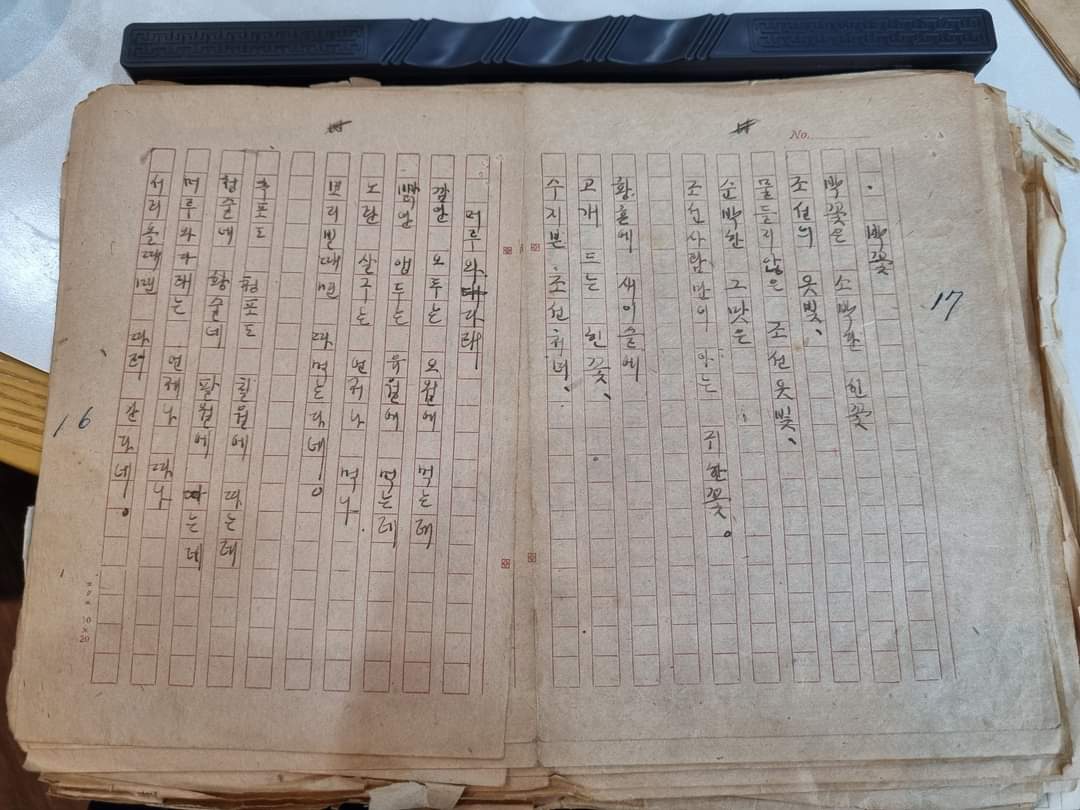 No.
17
· 박꽃
박꽃은 소박한 힌꽃
조선의 옷빛、
물들지않은 조선옷빛、
순박한 그 맛은
조선사람만이 아는 귀한꽃。
황혼에 새이슬에
고개드는 힌꽃、
수지분 조선처녀、
16
머루와 다래
감안 오투는 오월에 먹는데
빩안 앵두는 유월에 먹는데
노란 살구는 언제나 먹나.
보리빌때면 따먹는다네!
포도 청포도 칠월에 따는데
청줄네 황줄네 팔월에 따는데
머루와다래는 언제나 따나
서리올때면 따러 간다네!
10×20